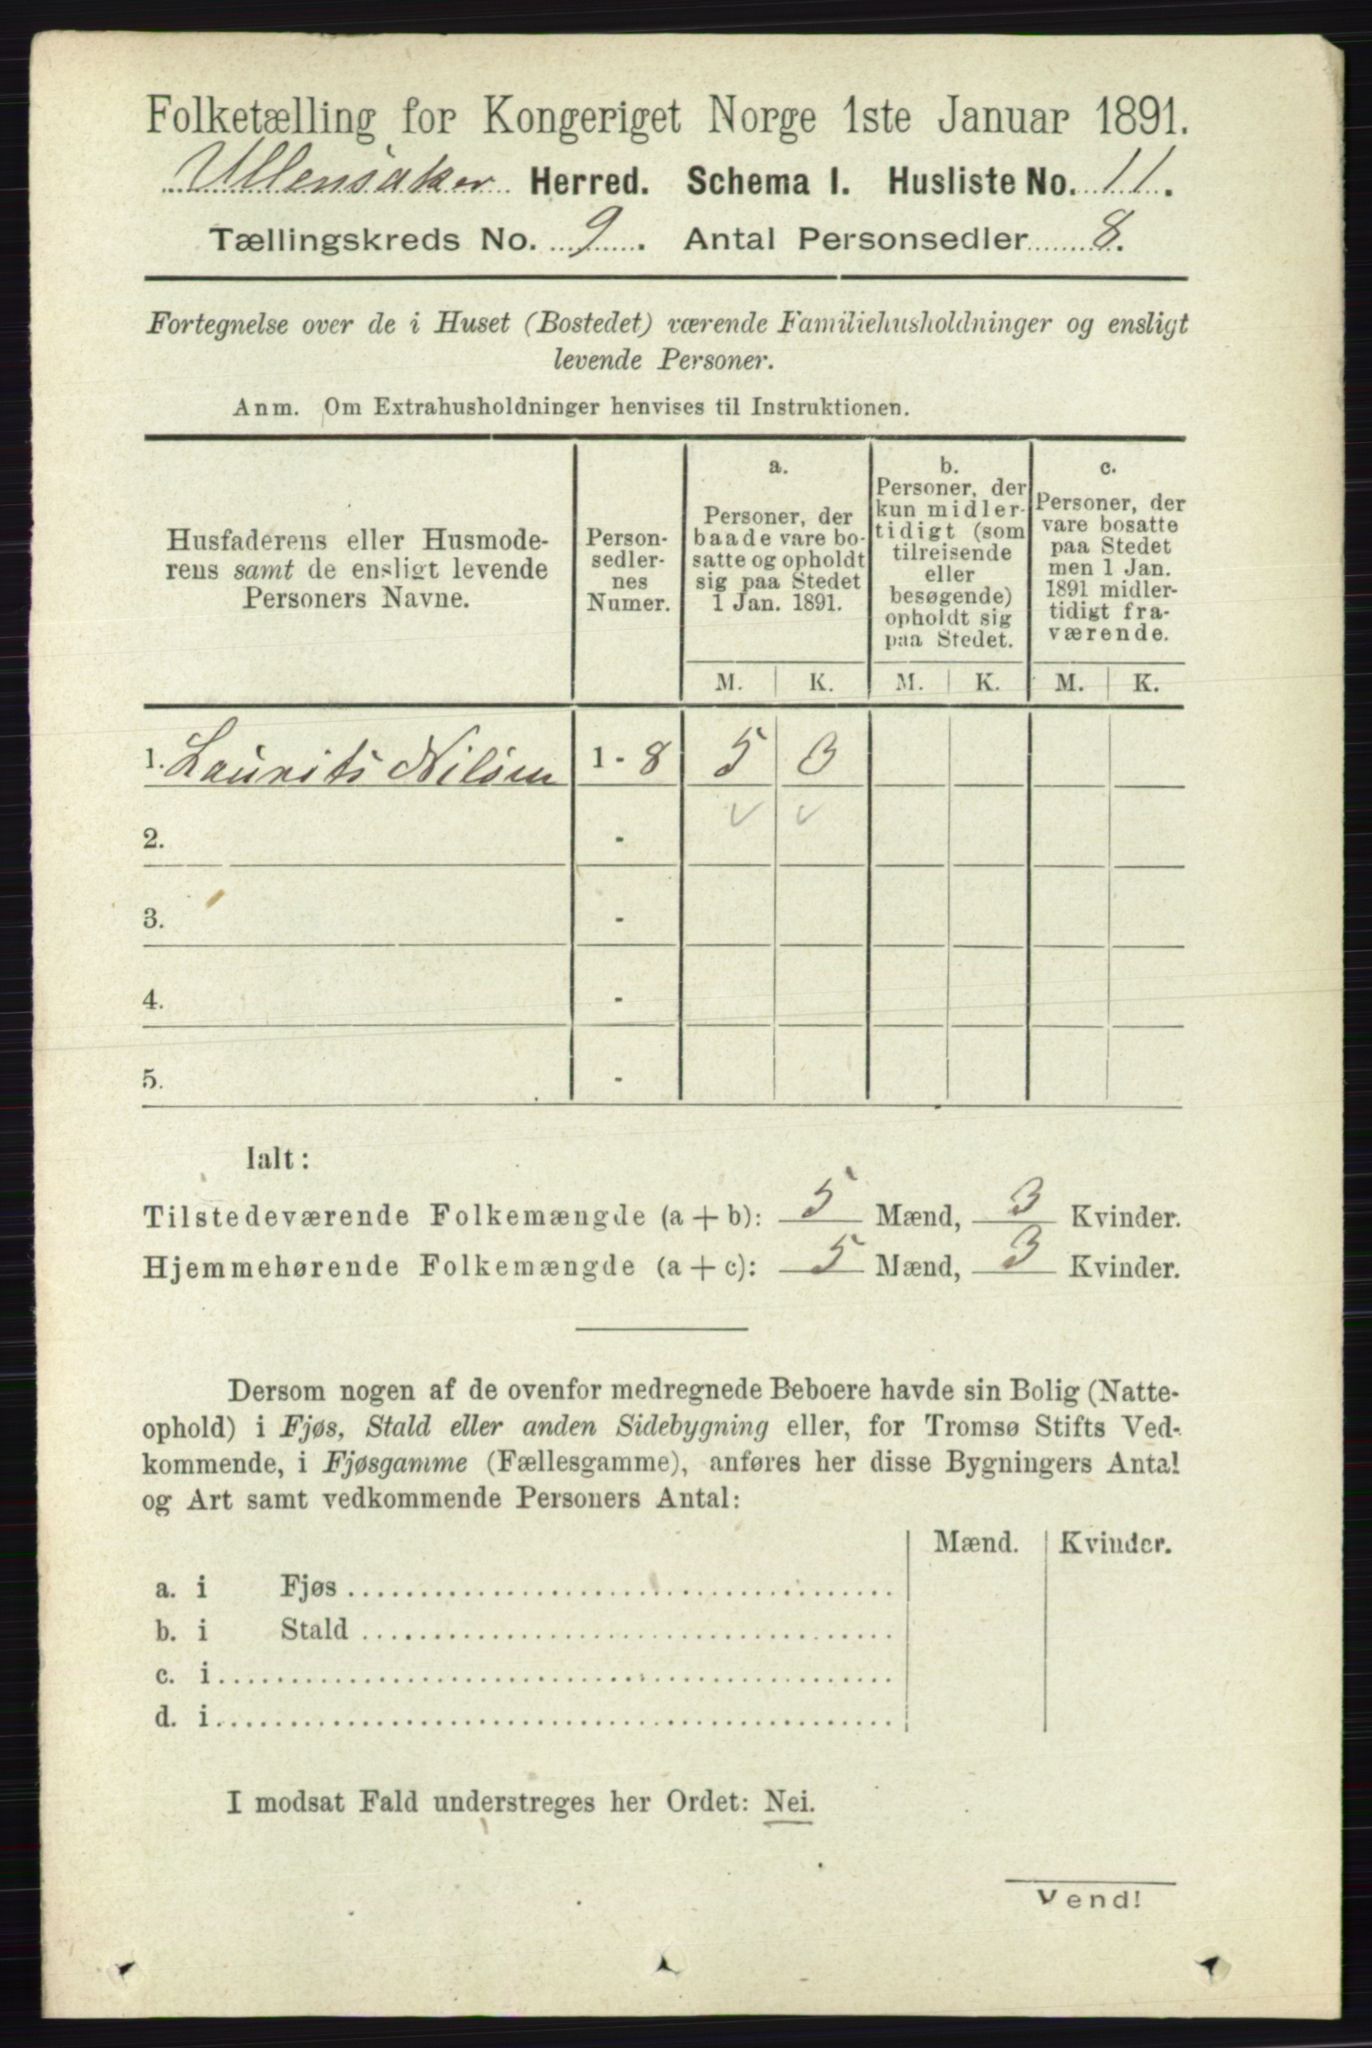 Folketælling for Kongeriget Norge 1ste Januar 1891.
Ullensaker Herred. Schema I. Husliste No. 11.
Tællingskreds No. 9. Antal Personsedler 8.
Fortegnelse over de i Huset (Bostedet) værende Familiehusholdninger og ensligt
levende Personer.
Anm. Om Extrahusholdninger henvises til Instruktionen.
Husfaderens eller Husmode-
rens samt de ensligt levende
Personers Navne.
Person-
sedler-
nes
Numer.
a.
Personer, der
baade vare bo-
satte og opholdt
sig paa Stedet
1 Jan. 1891.
b.
Personer, der
kun midler-
tidigt (som
tilreisende
eller
besøgende)
opholdt sig
paa Stedet.
c.
Personer, der
vare bosatte
paa Stedet
men 1 Jan.
1891 midler-
tidigt fra-
værende.
M. K. M. K. M. K.
1. Laurits Nilsen 1 - 8 5 3
2. - ✓ ✓
3. -
4. -
5. -
Ialt:
Tilstedeværende Folkemængde (a + b): 5 Mænd, 3 Kvinder.
Hjemmehørende Folkemængde (a + c): 5 Mænd, 3 Kvinder.
Dersom nogen af de ovenfor medregnede Beboere havde sin Bolig (Natte-
ophold) i Fjøs, Stald eller anden Sidebygning eller, for Tromsø Stifts Ved-
kommende, i Fjøsgamme (Fællesgamme), anføres her disse Bygningers Antal
og Art samt vedkommende Personers Antal:
Mænd. Kvinder.
a. i Fjøs
b. i Stald
c. i
d. i
I modsat Fald understreges her Ordet: Nei.
Vend!